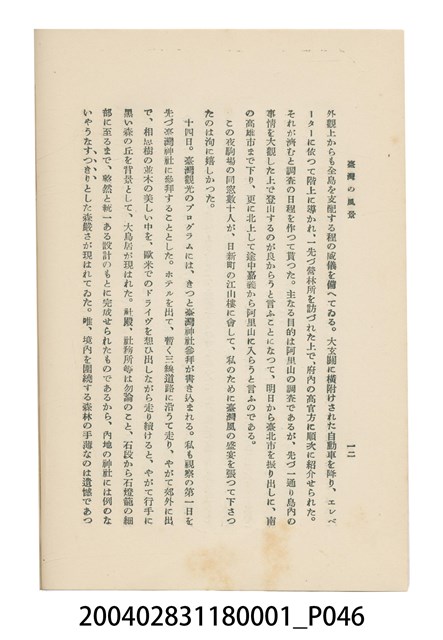 臺灣の風景
一二
外觀上からも全島を支配する程の威儀を備へてゐる。大玄關に橫附けされた自動車を降り、エレベ
ーターに依つて階上に導かれ、一先づ營林所を訪づれた上で、府內の高官方に順次に紹介せられた。
それが濟むと調査の日程を作つて貰つた。主なる目的は阿里山の調査であるが、先づ一通り島內の
事情を大觀した上で登山するのが良からうと言ふことになつて、明日から臺北市を振り出しに、南
の高雄市まで下り、更に北上して途中嘉義から阿里山に入らうと言ふのである。
この夜駒場の同窓數十人が、日新町の江山樓に會して、私のために臺灣風の盛宴を張つて下さつ
たのは洵に嬉しかつた。
十四日。臺灣觀光のプログラムには、きつと臺灣神社參拜が書き込まれる。私も視察の第一日を
先づ臺灣神社に參拜することとした。ホテルを出て、暫く三線道路に沿うて走り、やがて郊外に出
で、相思樹の並木の美しい中を、歐米でのドライヴを想ひ出しながら走り續けると、やがて行手に
黑い森の丘を背景として、大鳥居が現はれた。社殿、社務所等は勿論のこと、石段から石燈籠の細
部に至るまで、整然と統一ある設計のもとに完成せられたものであるから、內地の神社には例のな
いやうなすつきりとした森嚴さが現はれてゐた。唯、境內を圍繞する森林の手薄なのは遺憾であつ
200402831180001_P046